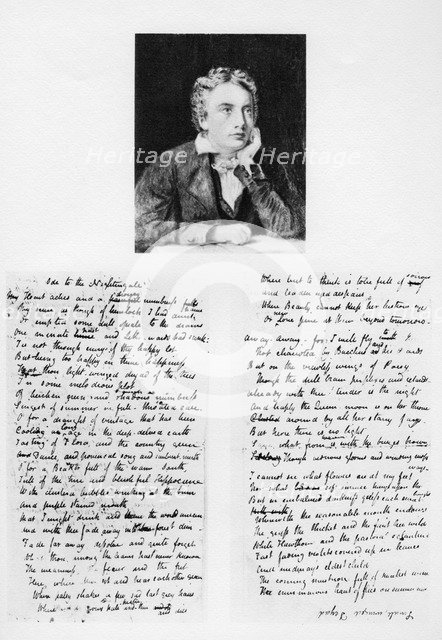 Heritage Heritage
Ode to the Nightingale
My Heart aches and a drowsy numbness pains
My sense as though of hemlock I had drunk
Or emptied some dull opiate to the drains
One minute past and Lethe-wards had sunk
'Tis not through envy of thy happy lot
But being too happy in thine happiness
That thou light-winged dryad of the trees
In some melodious plot
Of beechen green and shadows numberless
Singest of summer in full-throated ease
O for a draught of vintage that has been
Cooling an age in the deep-delved earth
Tasting of Flora and the country green
And Dance, and provencal song and sunburnt mirth
O for a Beaker full of the warm South
Full of the true and blushful Hippocrene
With clustered bubbles winking at the brim
And purple stained mouth
That I might drink and leave the world unseen
And with thee fade away into the forest dim
Fade far away dissolve and quite forget
What thou among the leaves hast never known
The weariness the fever and the fret
Here, where men sit and hear each other groan
Where palsy shakes a few sad last grey hairs
Where youth grows pale and thin and dies
Where but to think is to be full of sorrow
and leaden eyed despairs
Where Beauty cannot keep her lustrous eyes
Or new Love pine at them beyond tomorrow
Away away for I will fly to thee
Not charioted by Bacchus and his Pards
But on the viewless wings of Poesy
Though the dull brain perplexes and retards
Already with thee tender is the night
And haply the Queen moon is on her throne
around by all her starry fays
But here there is no light
Save what from heaven is with the breezes blown
Through verdurous glooms and winding mossy ways
I cannot see what flowers are at my feet
Nor what soft incense hangs upon the boughs
But in embalmed darkness guess each sweet
Wherewith the seasonable month endows
The grass the thicket and the fruit tree wild
White Hawthorn and the pastoral eglantine
Fast fading violets covered up in leaves
And midmays eldest child
The coming musk rose full of
The murmurous haunt of flies on summer eves